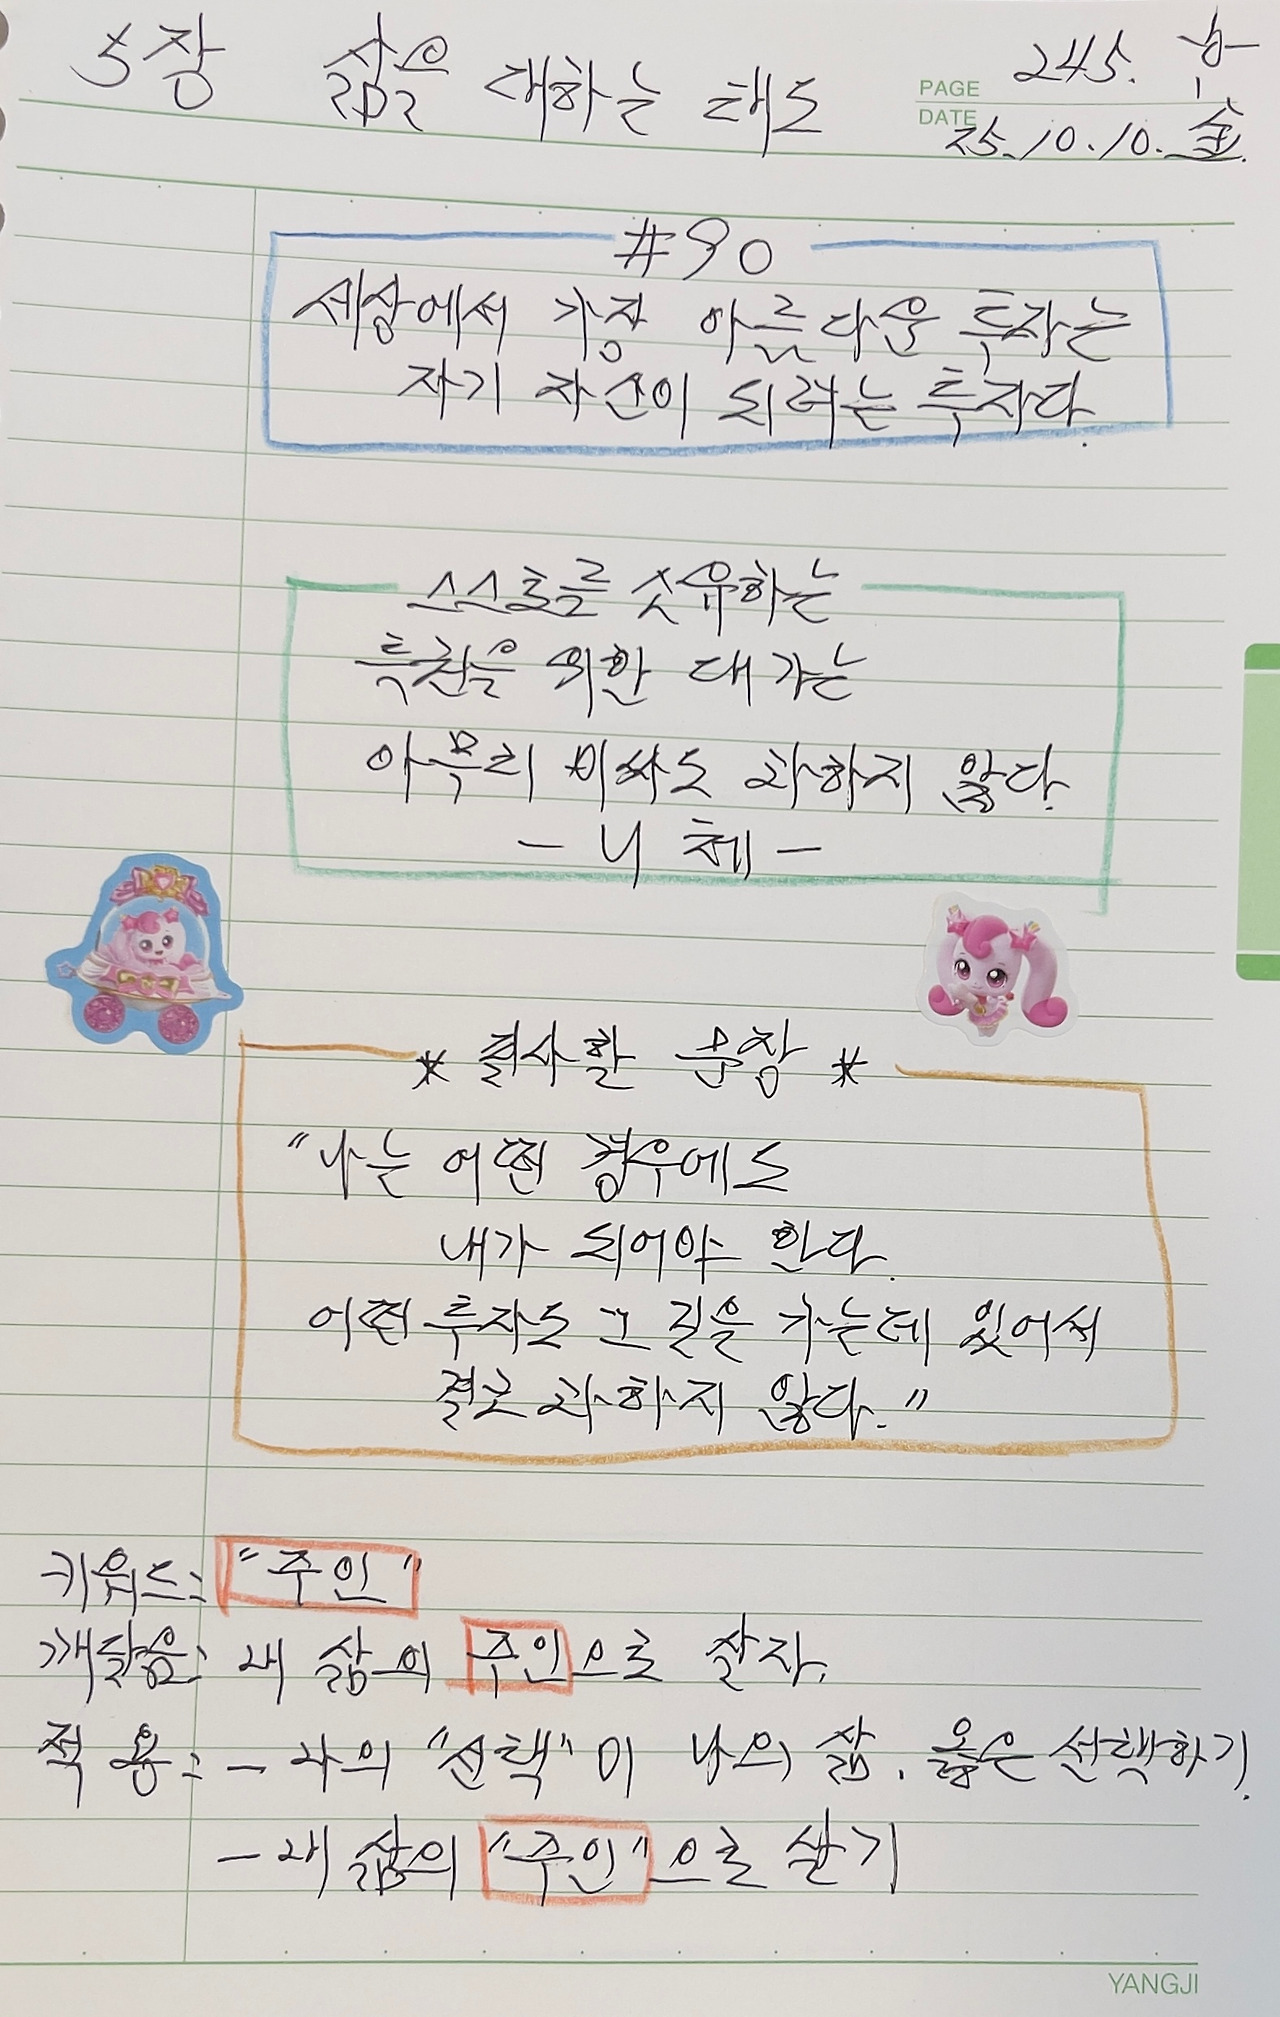 5장 삶을 대하는 태도
PAGE 245.
DATE 25.10.10. 金.
#90
세상에서 가장 아름다운 투자는
자기 자신이 되려는 투자다.
스스로를 소유하는
특권을 위한 대가는
아무리 비싸도 과하지 않다.
- 니체 -
* 필사할 문장 *
"나는 어떤 경우에도
내가 되어야 한다.
어떤 투자도 그 길을 가는데 있어서
결코 과하지 않다."
키워드: "주인"
깨달음: 내 삶의 주인으로 살자.
적용: - 나의 "선택"이 나의 삶. 옳은 선택하기.
- 내 삶의 "주인"으로 살기
YANGJI